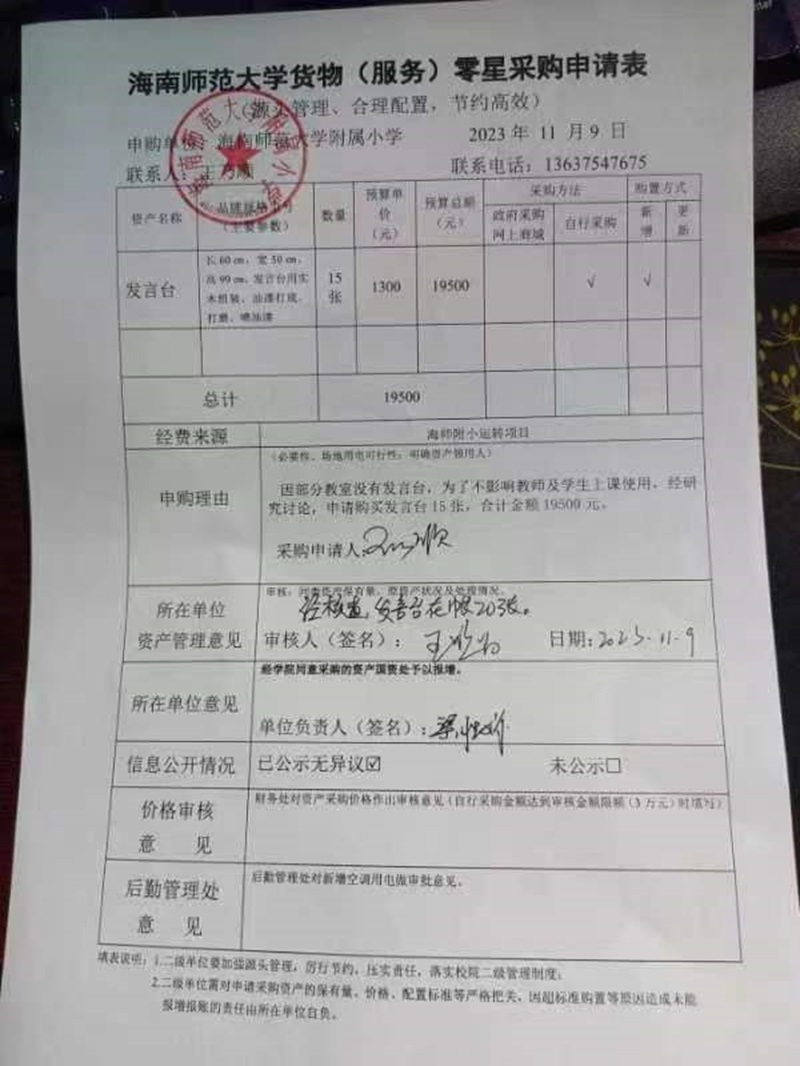 海南师范大学货物（服务）零星采购申请表
（源头管理、合理配置，节约高效）
申购单位：海南师范大学附属小学 2023 年 11 月 9 日
联系人： 联系电话：13637547675
资产名称 品牌规格型号（主要参数） 数量 预算单价（元） 预算总额（元） 采购方法 购置方式
政府采购网上商城 自行采购 新增 更新
发言台 长 60 cm，宽 50 cm，
高 99 cm，发言台用实
木组装，油漆打底，
打磨，喷油漆
15 张 1300 19500 √ √
总计 19500
经费来源 海师附小运转项目
申购理由
（必要性、场地用电可行性；明确资产领用人）
因部分教室没有发言台，为了不影响教师及学生上课使用，经研
究讨论，申请购买发言台 15 张，合计金额 19500 元。
采购申请人：
所在单位
资产管理意见
经核查，发言台在帐203张。
审核人（签名）： 日期：2023-11-9
所在单位意见
经学院同意采购的资产国资处予以报增。
单位负责人（签名）：
信息公开情况 已公示无异议☑ 未公示☐
价格审核
意 见
财务处对资产采购价格作出审核意见（自行采购金额达到审核金额限额（3 万元）时填写）
后勤管理处
意 见
后勤管理处对新增空调用电做审批意见。
填表说明：1.二级单位要加强源头管理，厉行节约，压实责任，落实校院二级管理制度；
2.二级单位需对申请采购资产的保有量、价格、配置标准等严格把关，因超标准购置等原因造成未能
报增报账的责任由所在单位自负。